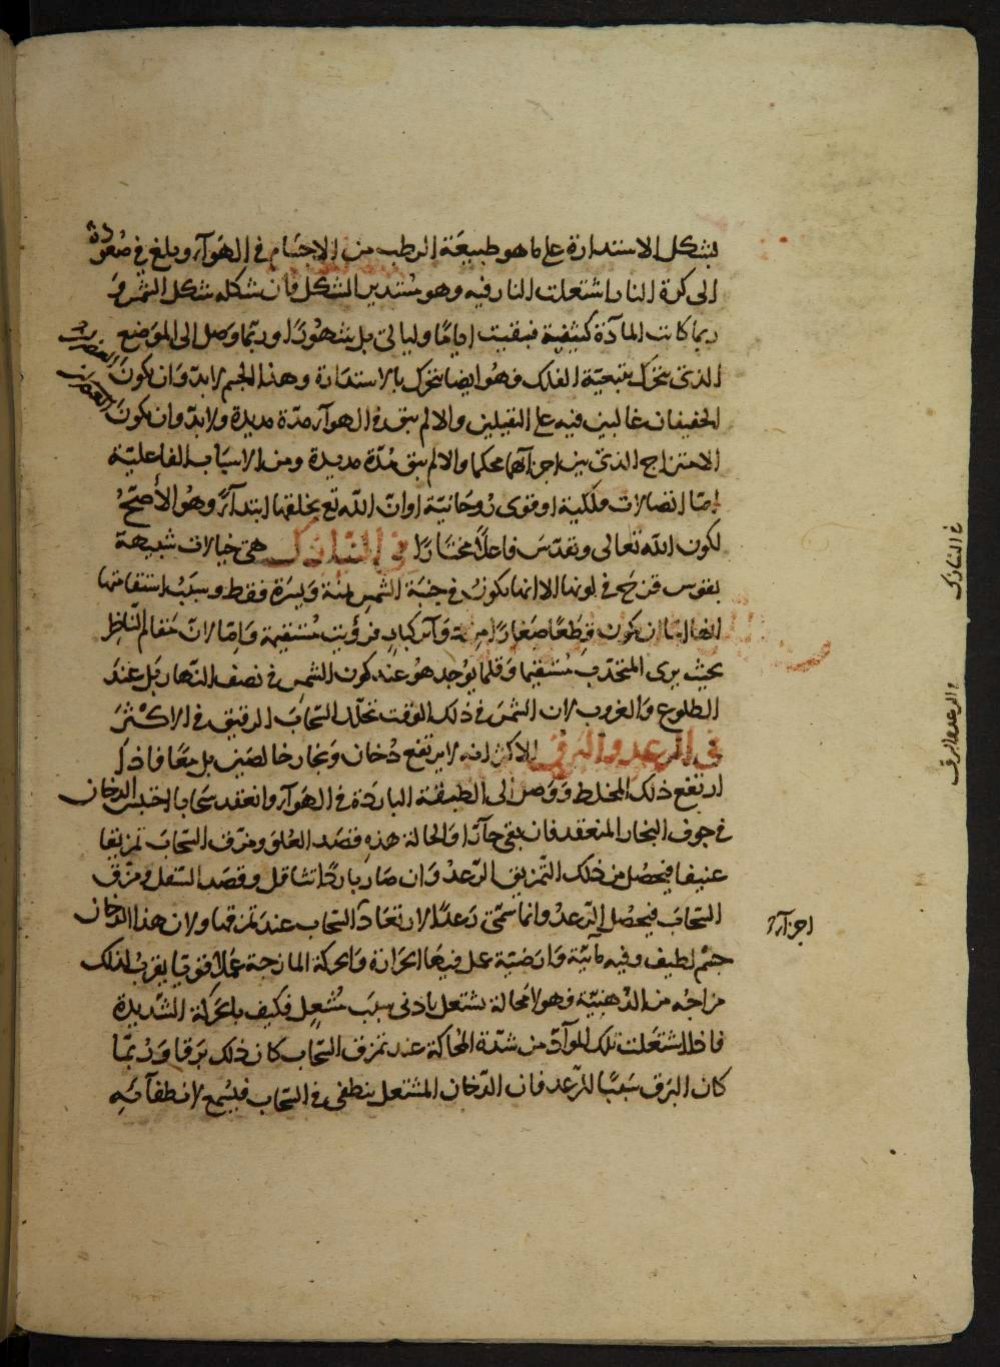 بشكل الاستدارة على ما هو طبيعة الرطب من الاجسام في الهوآء وبلغ في صعوده
الى كرة النار اشتعلت النار فيه وهو مستدير الشكل فان شكله شكل الشمس و
ربما كانت المآدة كثيفة فبقيت اياما وليالى بل شهورًا وربما وصل الى الموضع
الذى يتحرك بتبعية الفلك فهو ايضا يتحرك بالاستدارة وهذا الجسم لا بد وان يكون العنصران
الخفيفان غالبين فيه على الثقيلين والا لم يبق في الهوآء مدة مديدة ولا بد وان يكون
الامتزاج الذى بين اجزآئهما محكما والا لم يبق مدة مديدة ومن الاسباب الفاعلية
اما اتصالات فلكية او قوى روحانية او ان الله تع يخلقها ابتدآءً وهو الأصح
لكون الله تعالى وتقدس فاعلًا مختارًا في النيازك هى خيالات شبيهة
بقوس قزح في لونها الا انها تكون في جنبة الشمس يمنة ويسرة فقط وسبب استقامتها
انها اما ان تكون قطعًا صغارًا من دوآئر كبار فرؤيت مستقيمة واما لان مقام الناظر
بحيث يرى المتحدب مستقيما وقلما يوجد هو عند كون الشمس في نصف النهار بل عند
الطلوع والغروب لان الشمس في ذلك الوقت تحلل السحاب الرقيق في الاكثر
في الرعد والبرق الاكثر انه لا يرتفع دخان وبخار خالصين بل معًا فاذا
ارتفع ذلك المخلط ووصل الى الطبقة الباردة في الهوآء وانعقد سحابا احتبس الدخان
في جوف البخار المنعقد فان بقى حآرًا والحالة هذه قصد العلو ومزق السحاب تمزيقا
عنيفا فيحصل من ذلك التمزيق الرعد وان صار باردًا تثاقل وقصد السفل ومزق
السحاب فيحصل الرعد وانما سمى رعدًا لارتعاد السحاب عند تمزقها ولان هذا الدخان
جسم لطيف وفيه مآئية وارضية عمل فيها الحرارة والحركة المازجة عملًا قويا يقرب لذلك
مزاجه من الدهنية فهو لا محالة يشتعل بادنى سبب مشعل فكيف بالحركة الشديدة
فاذا اشتعلت تلك الموآد من شدة المحاكة عند تمزق السحاب كان ذلك برقا وربما
كان البرق سببًا للرعد فان الدخان المشتعل ينطفى في السحاب فيسمع لانطفآئه
في النيازك
في الرعد والبرق
اجزآء